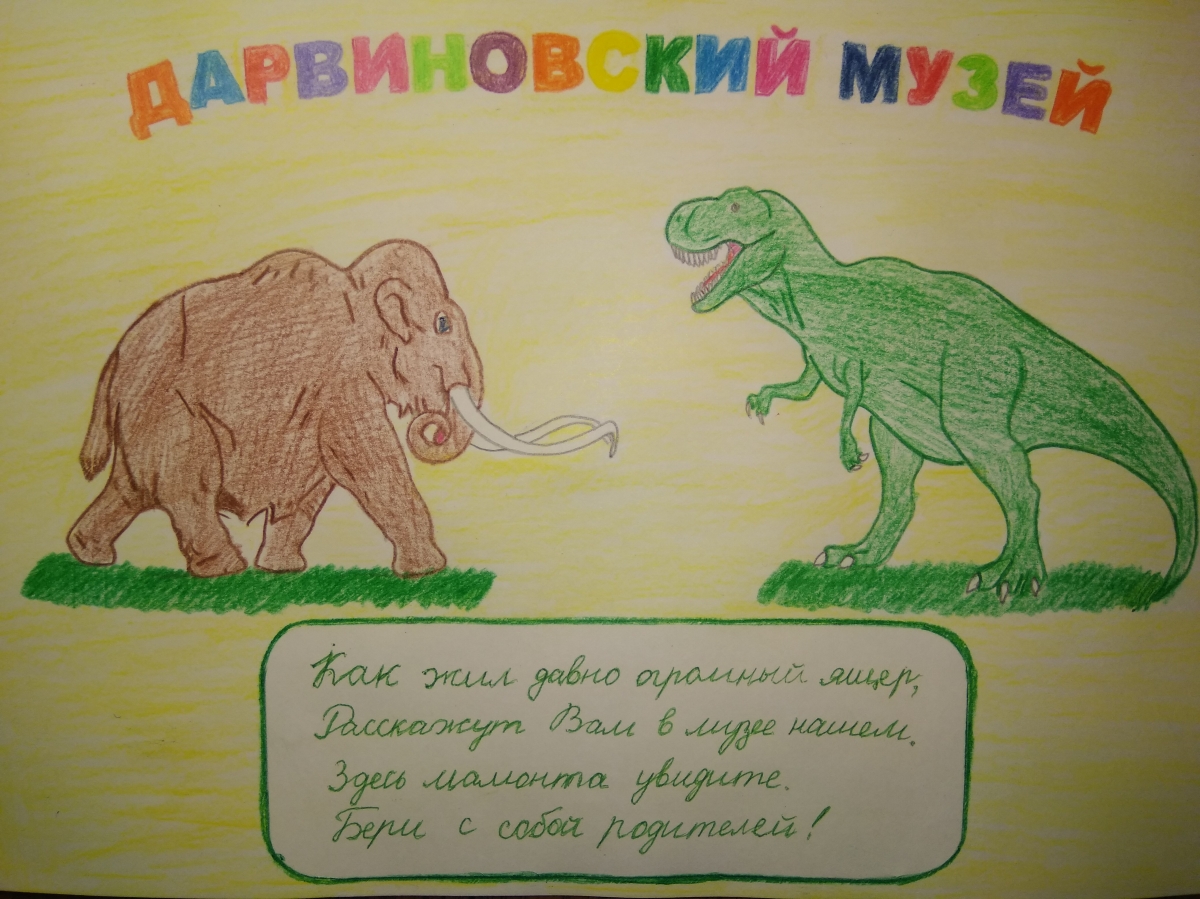 ДАРВИНОВСКИЙ МУЗЕЙ
Как жил давно огромный ящер,
Расскажут Вам в музее нашем.
Здесь мамонта увидите.
Бери с собой родителей!